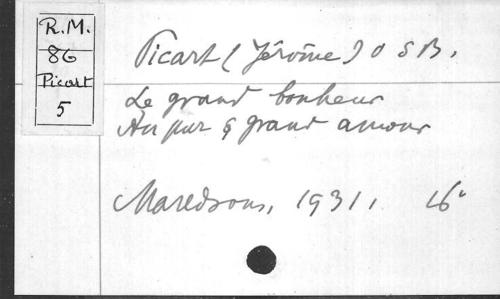 R.M.
86
Picart
5
Picart (Jérôme) O S B.
Le grand bonheur
Au pur & grand amour
Maredsous, 1931, 16°